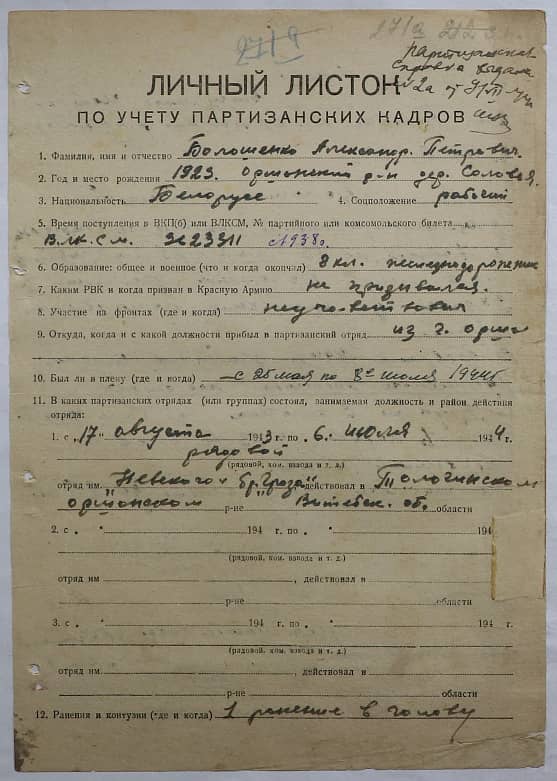 27/а
ЛИЧНЫЙ ЛИСТОК
ПО УЧЕТУ ПАРТИЗАНСКИХ КАДРОВ
Партизанская
справка выдана
1. Фамилия, имя и отчество Болошенко Александр Петрович.
2. Год и место рождения 1923. Оршанский р-н дер. Соловья.
3. Национальность Белорусс 4. Соцположение рабочий
5. Время поступления в ВКП(б) или ВЛКСМ, № партийного или комсомольского билета
В.лк.с.м. с 1938г.
6. Образование: общее и военное (что и когда окончил) 8 кл. железнодорожные
7. Каким РВК и когда призван в Красную Армию не призывался.
8. Участие на фронтах (где и когда) неучаствовал
9. Откуда, когда и с какой должности прибыл в партизанский отряд из г. Орши
10. Был ли в плену (где и когда) с 25 мая по 8е июля 1944г
11. В каких партизанских отрядах (или группах) состоял, занимаемая должность и район действия
отряда:
1. с "17" августа 1943 г. по "6" июля 1944 г.
рядовой
(рядовой, ком. взвода и т. д.)
отряд им. Невского бр. "Гроза" действовал в Толочинском
оршанском р-не Витебск. об. области
2. с " " 194 г. по " " 194
(рядовой, ком. взвода и т. д.)
отряд им , действовал в
р-не области
3. с " " 194 г. по " " 194 г.
(рядовой, ком. взвода и т. д.)
отряд им , действовал в
р-не области
12. Ранения и контузии (где и когда) 1 ранение в голову